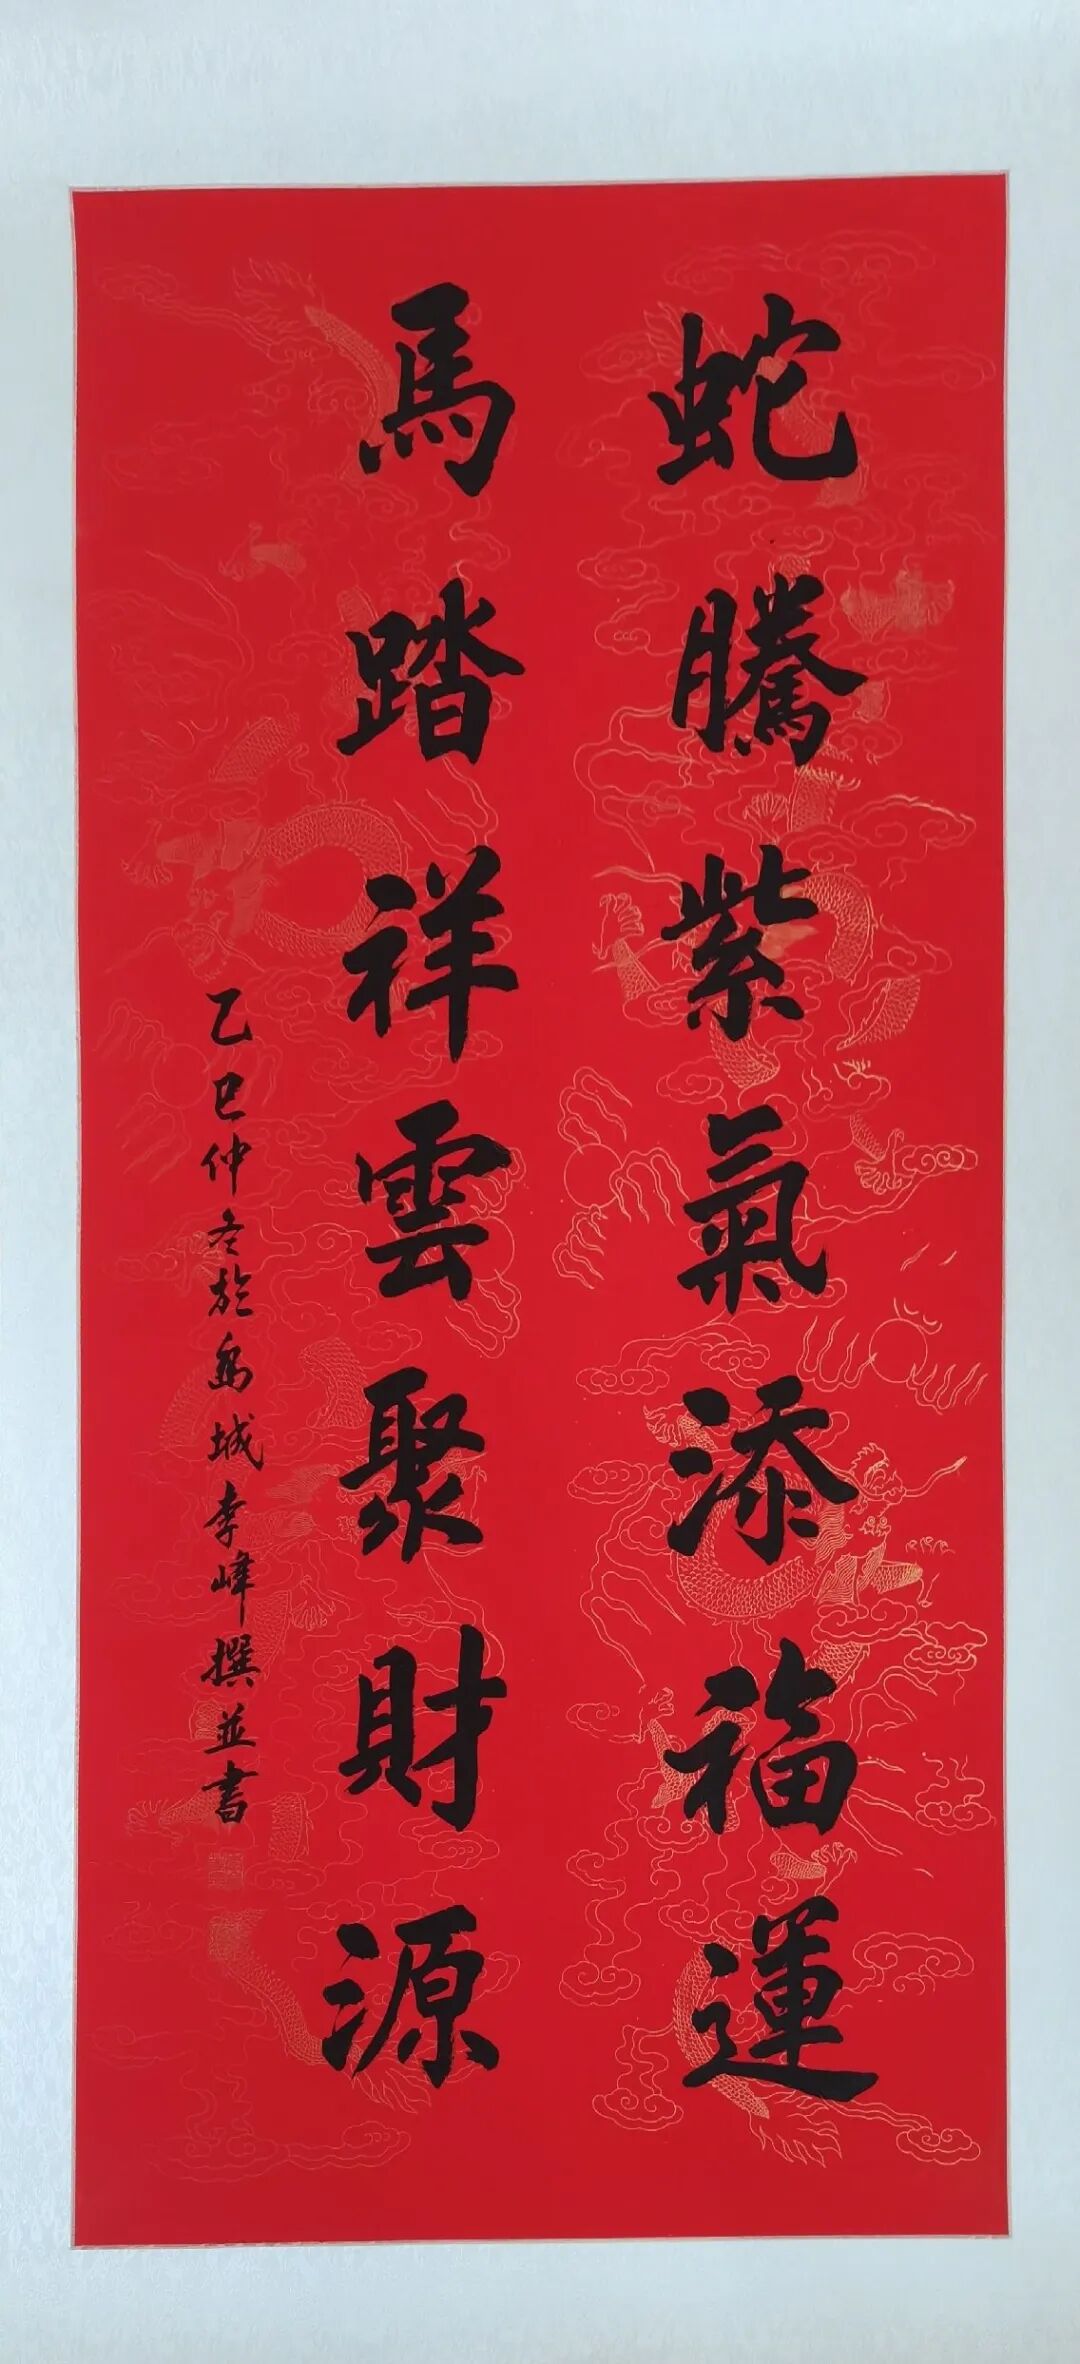 蛇騰紫氣添福運
馬踏祥雲聚財源
乙巳仲冬於禹城李峰撰並書